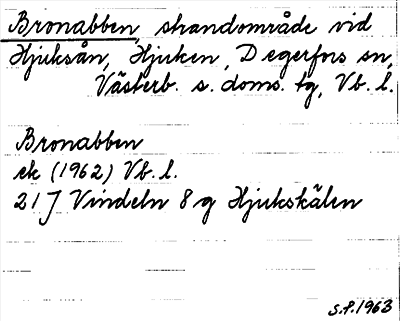 Bronabben, strandområde vid
Hjuksån, Hjuken, Degerfors sn,
Västerb. s. doms. tg, Vb. l.
Bronabben
ek (1962) Vb. l.
21J Vindeln 8 g Hjukskälen
S.P. 1963